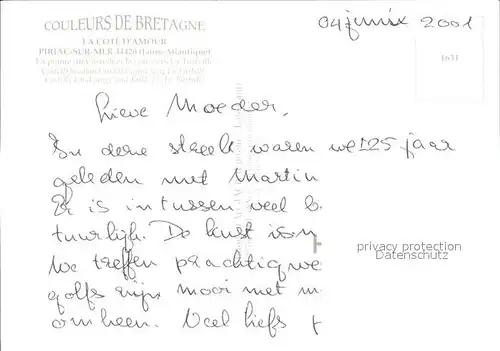 COULEURS DE BRETAGNE
LA COTE D'AMOUR
PIRIAC-SUR-MER 44420 (Loire-Atlantique)
2001
1631
Lieve Moeder,
In deze streek waren we ±25 jaar
geleden met Martin
Er is intussen veel b
tuurlijk. De kust is
We treffen prachtig we
golfs zijn mooi met
omheen. Veel liefs
privacy protection
Datenschutz